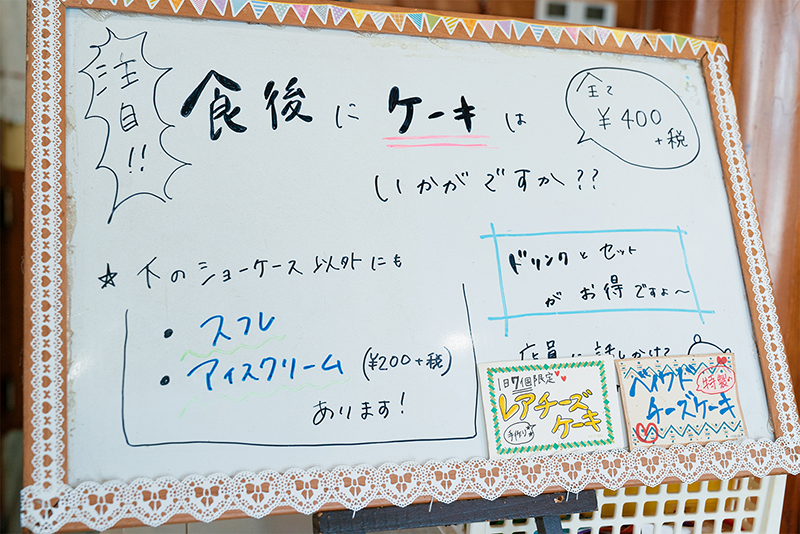 注目!!
食後に ケーキ は
いかがですか??
全て
¥400
+税
☆ 下のショーケース以外にも
• スフレ
• アイスクリーム (¥200+税)
あります!
ドリンクとセット
がお得ですよ〜
店員に話しかけて
1日7個限定♥♥
レアチーズ
ケーキ
手作り
ベイクド
特製
チーズケーキ